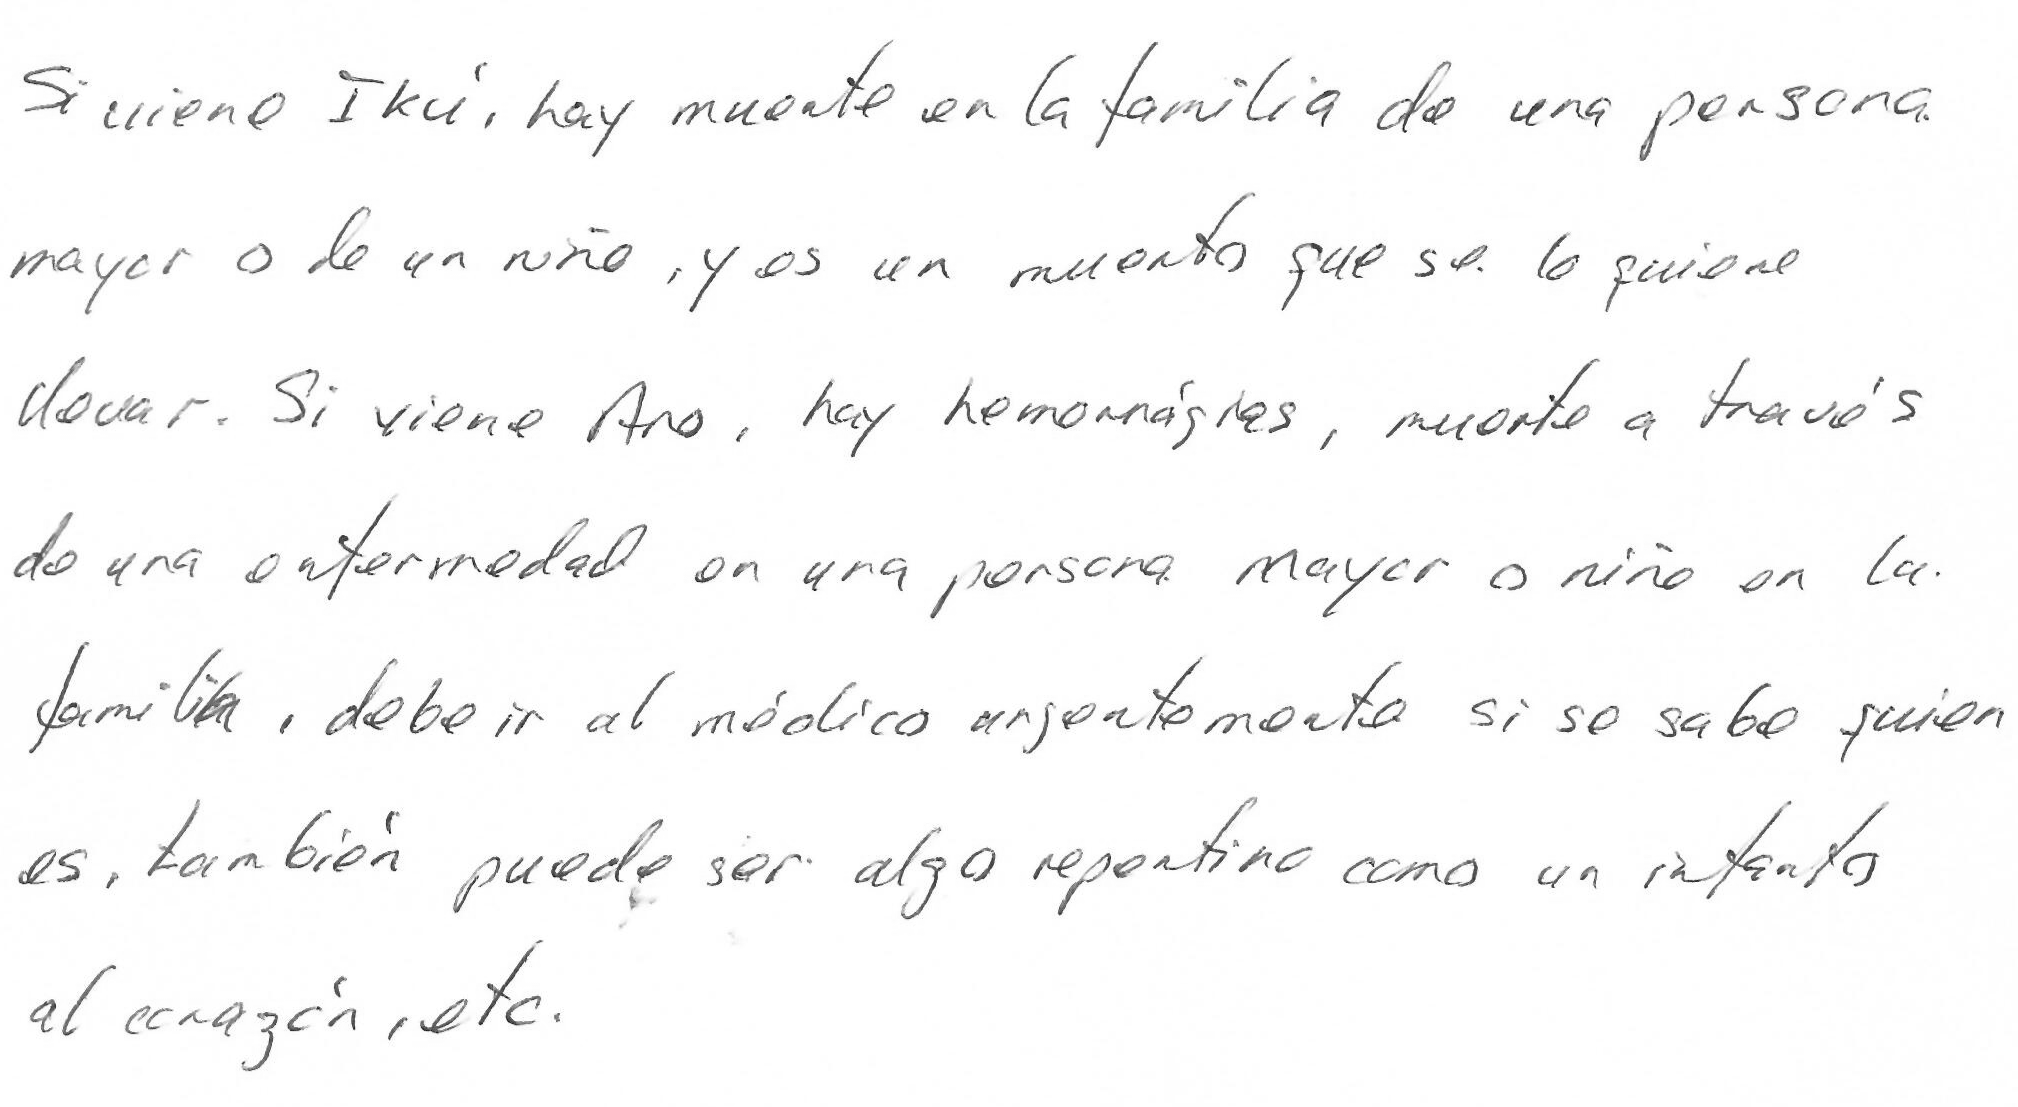 Si viene Ikú, hay muerte en la familia de una persona
mayor o de un niño, y es un muerto que se lo quiere
llevar. Si viene Aro, hay hemorrágias, muerte a través
de una enfermedad en una persona mayor o niño en la
familia, debe ir al médico urgentemente si se sabe quien
es, también puede ser algo repentino como un infarto
al corazón, etc.